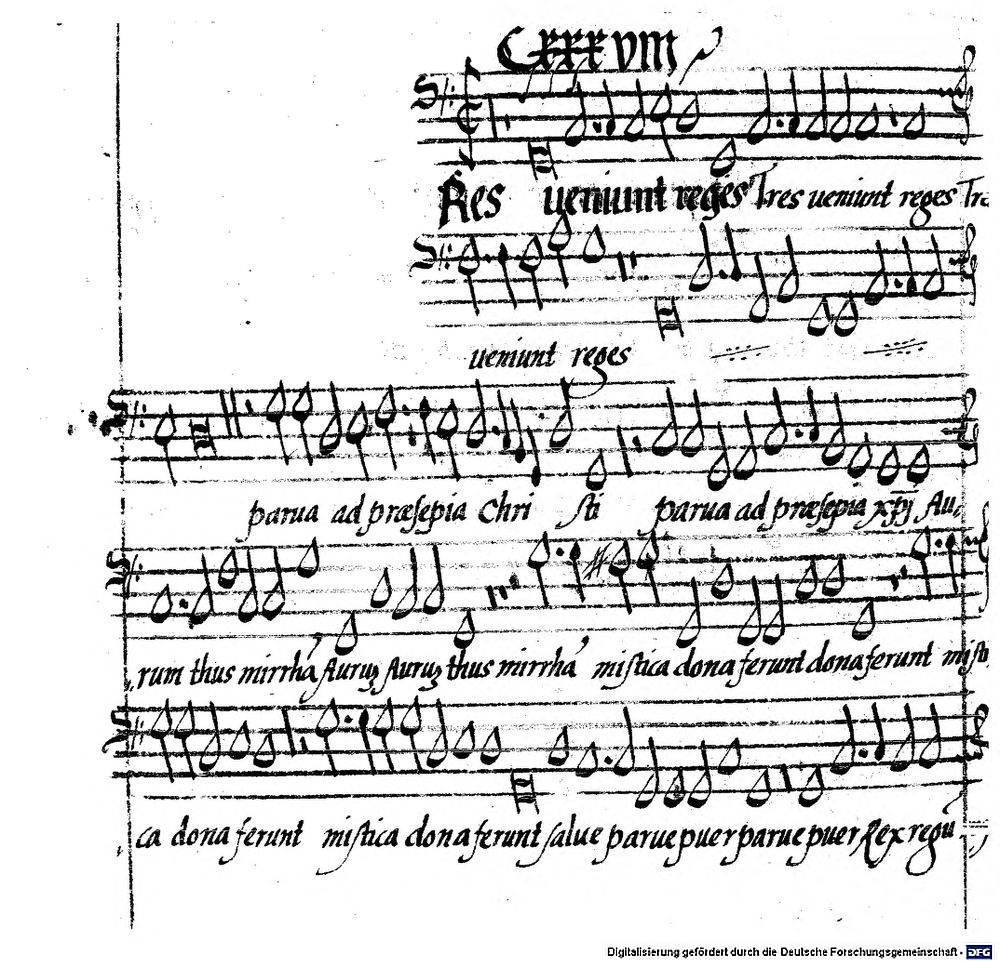 Cxxxviii
Res ueniunt reges Tres ueniunt reges Tres
ueniunt reges
parua ad præsepia Chri sti parua ad præsepia xpi Au,
rum thus mirrhā Aurum Aurum thus mirrhā mistica dona ferunt dona ferunt misti
ca dona ferunt mistica dona ferunt salue parue puer parue puer Rex regū
Digitalisierung gefördert durch die Deutsche Forschungsgemeinschaft - DFG